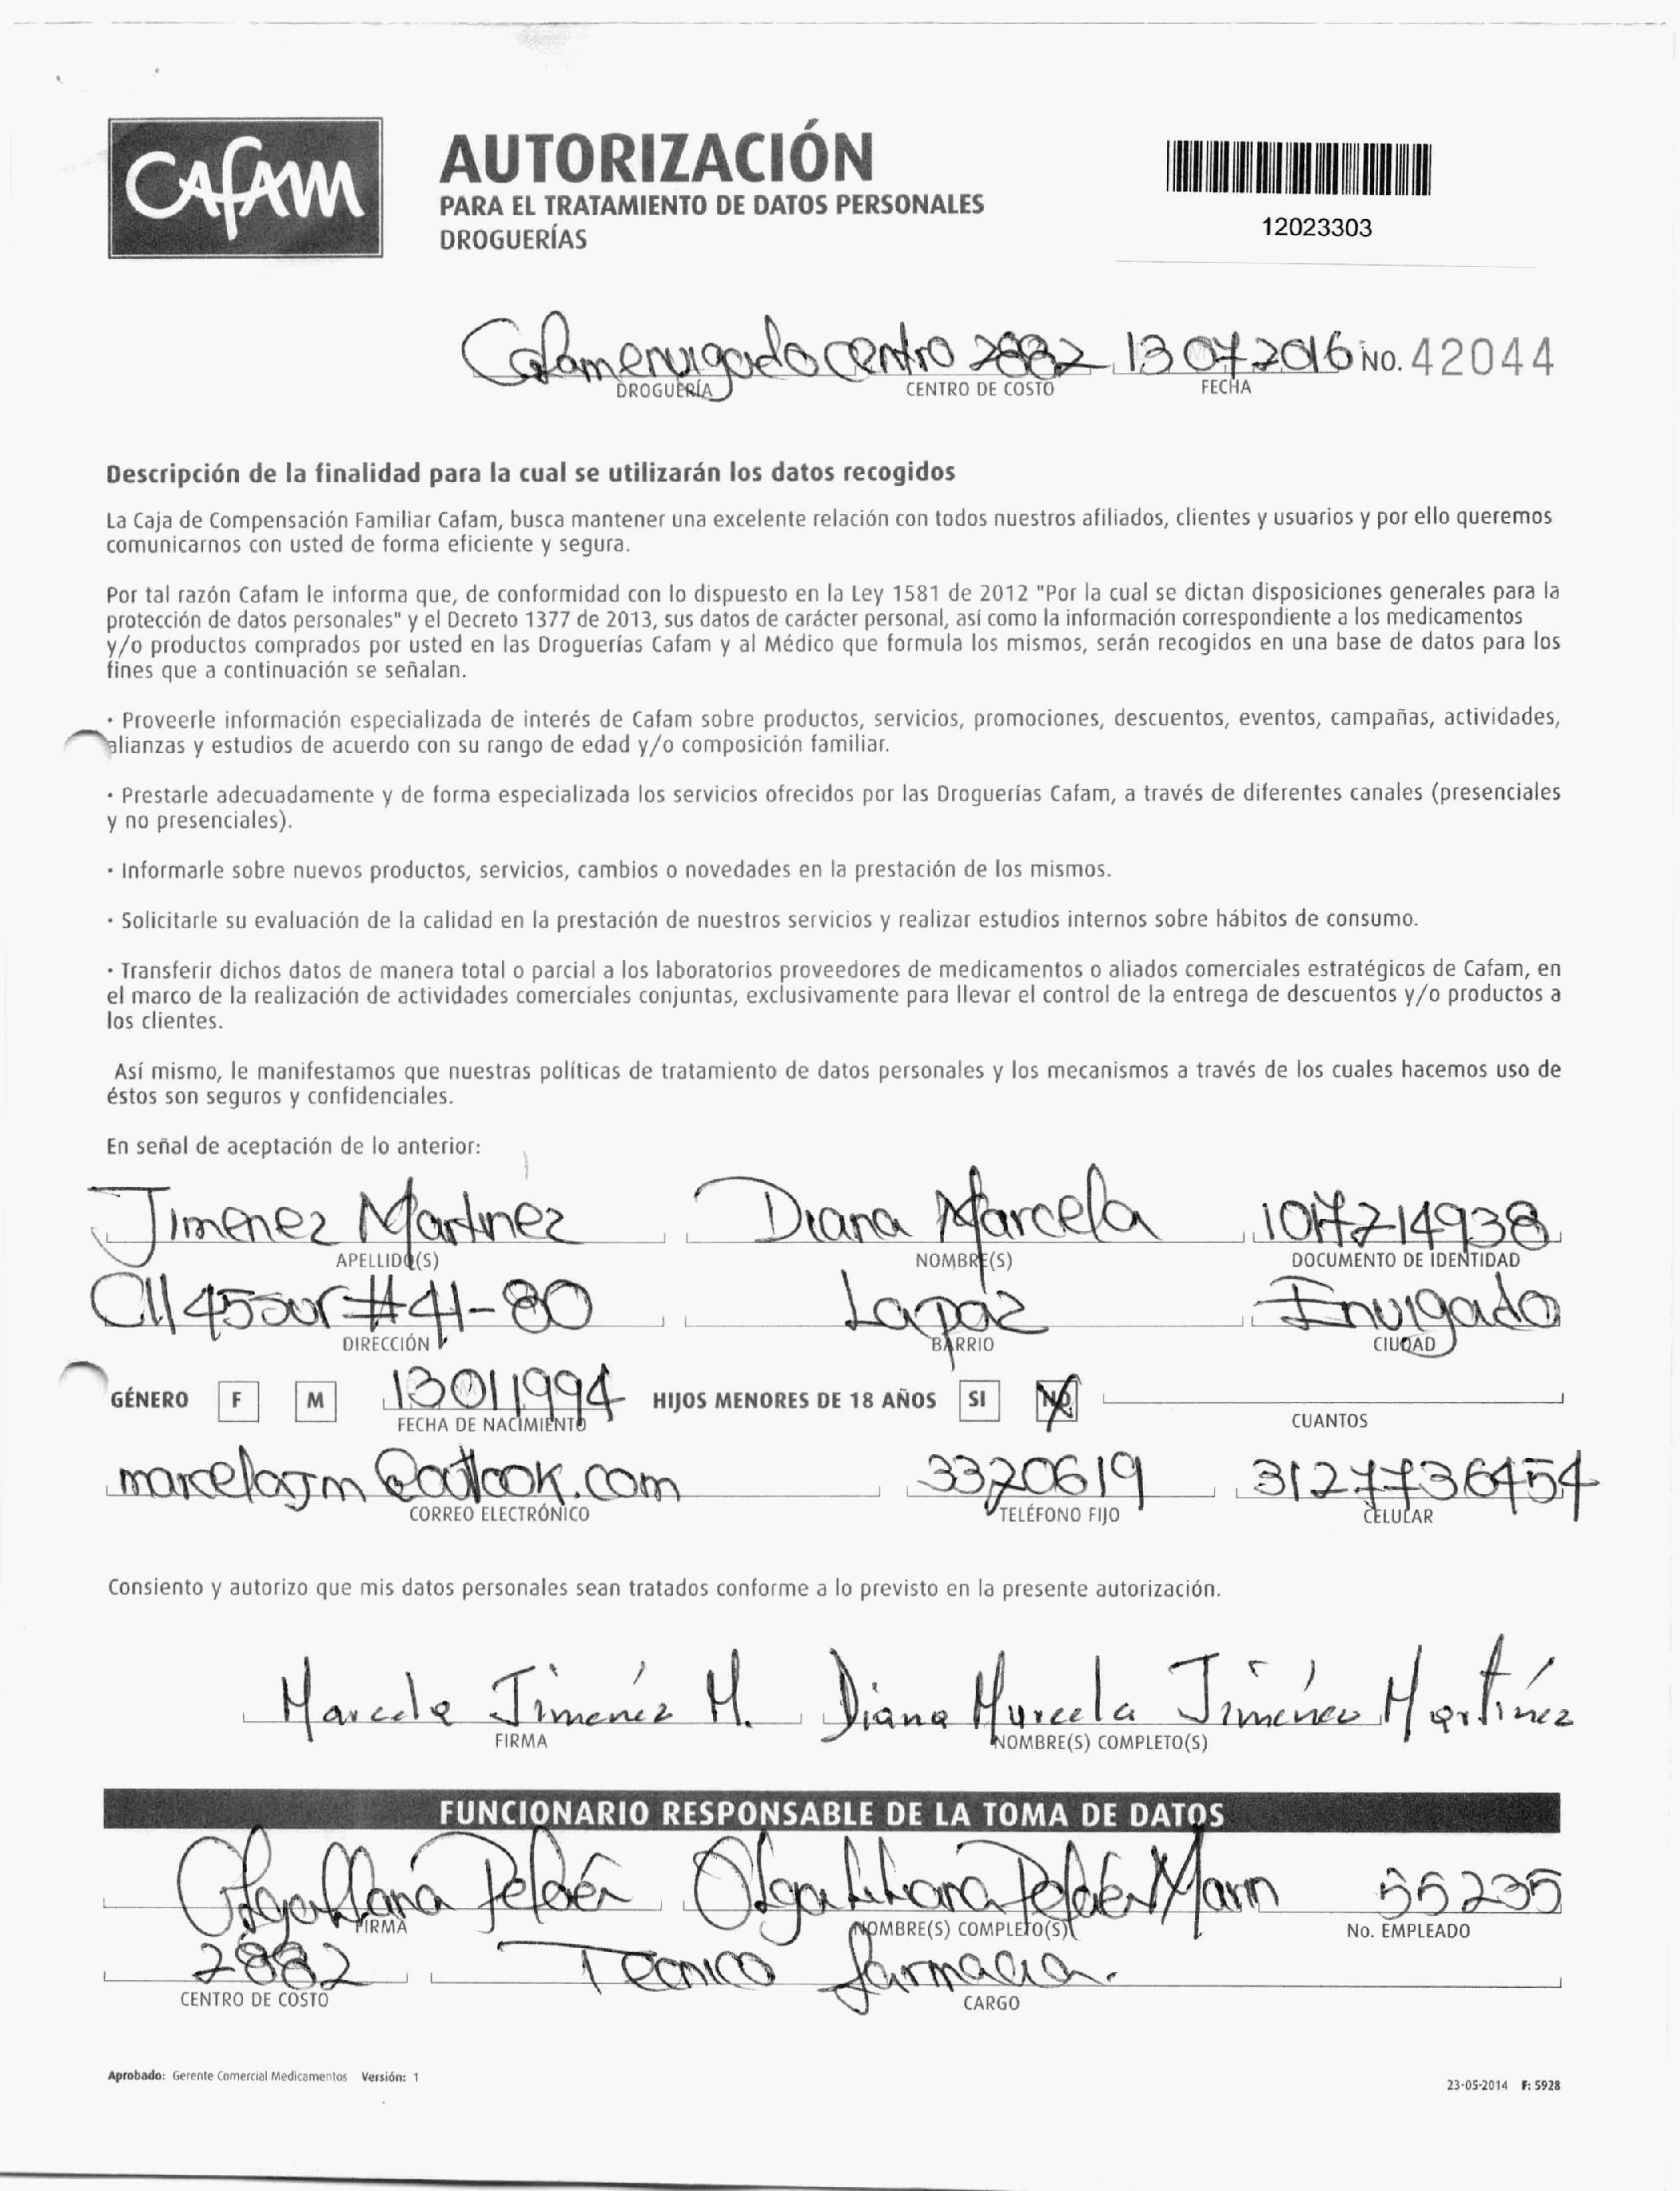 CAFAM
AUTORIZACIÓN
PARA EL TRATAMIENTO DE DATOS PERSONALES
DROGUERÍAS
12023303
Cafam envigado centro 2882 13 07 2016 NO. 42044
DROGUERÍA CENTRO DE COSTO FECHA
Descripción de la finalidad para la cual se utilizarán los datos recogidos
La Caja de Compensación Familiar Cafam, busca mantener una excelente relación con todos nuestros afiliados, clientes y usuarios y por ello queremos
comunicarnos con usted de forma eficiente y segura.
Por tal razón Cafam le informa que, de conformidad con lo dispuesto en la Ley 1581 de 2012 "Por la cual se dictan disposiciones generales para la
protección de datos personales" y el Decreto 1377 de 2013, sus datos de carácter personal, así como la información correspondiente a los medicamentos
y/o productos comprados por usted en las Droguerías Cafam y al Médico que formula los mismos, serán recogidos en una base de datos para los
fines que a continuación se señalan.
· Proveerle información especializada de interés de Cafam sobre productos, servicios, promociones, descuentos, eventos, campañas, actividades,
alianzas y estudios de acuerdo con su rango de edad y/o composición familiar.
· Prestarle adecuadamente y de forma especializada los servicios ofrecidos por las Droguerías Cafam, a través de diferentes canales (presenciales
y no presenciales).
· Informarle sobre nuevos productos, servicios, cambios o novedades en la prestación de los mismos.
· Solicitarle su evaluación de la calidad en la prestación de nuestros servicios y realizar estudios internos sobre hábitos de consumo.
· Transferir dichos datos de manera total o parcial a los laboratorios proveedores de medicamentos o aliados comerciales estratégicos de Cafam, en
el marco de la realización de actividades comerciales conjuntas, exclusivamente para llevar el control de la entrega de descuentos y/o productos a
los clientes.
Así mismo, le manifestamos que nuestras políticas de tratamiento de datos personales y los mecanismos a través de los cuales hacemos uso de
éstos son seguros y confidenciales.
En señal de aceptación de lo anterior:
Jimenez Martinez Diana Marcela 1017214938
APELLIDO(S) NOMBRE(S) DOCUMENTO DE IDENTIDAD
Cll 45 sur # 41-80 La paz Envigado
DIRECCIÓN BARRIO CIUDAD
GÉNERO F M 13011994 HIJOS MENORES DE 18 AÑOS SI NO
FECHA DE NACIMIENTO CUANTOS
marcelajm@outlook.com 3320619 3127736454
CORREO ELECTRÓNICO TELÉFONO FIJO CELULAR
Consiento y autorizo que mis datos personales sean tratados conforme a lo previsto en la presente autorización.
Marcela Jiménez M. Diana Marcela Jiménez Martínez
FIRMA NOMBRE(S) COMPLETO(S)
FUNCIONARIO RESPONSABLE DE LA TOMA DE DATOS
Olga liliana Peláez Olga Liliana Peláez Marin 55235
FIRMA NOMBRE(S) COMPLETO(S) No. EMPLEADO
2882 Tecnico farmacia.
CENTRO DE COSTO CARGO
Aprobado: Gerente Comercial Medicamentos Versión: 1
23-05-2014 F: 5928